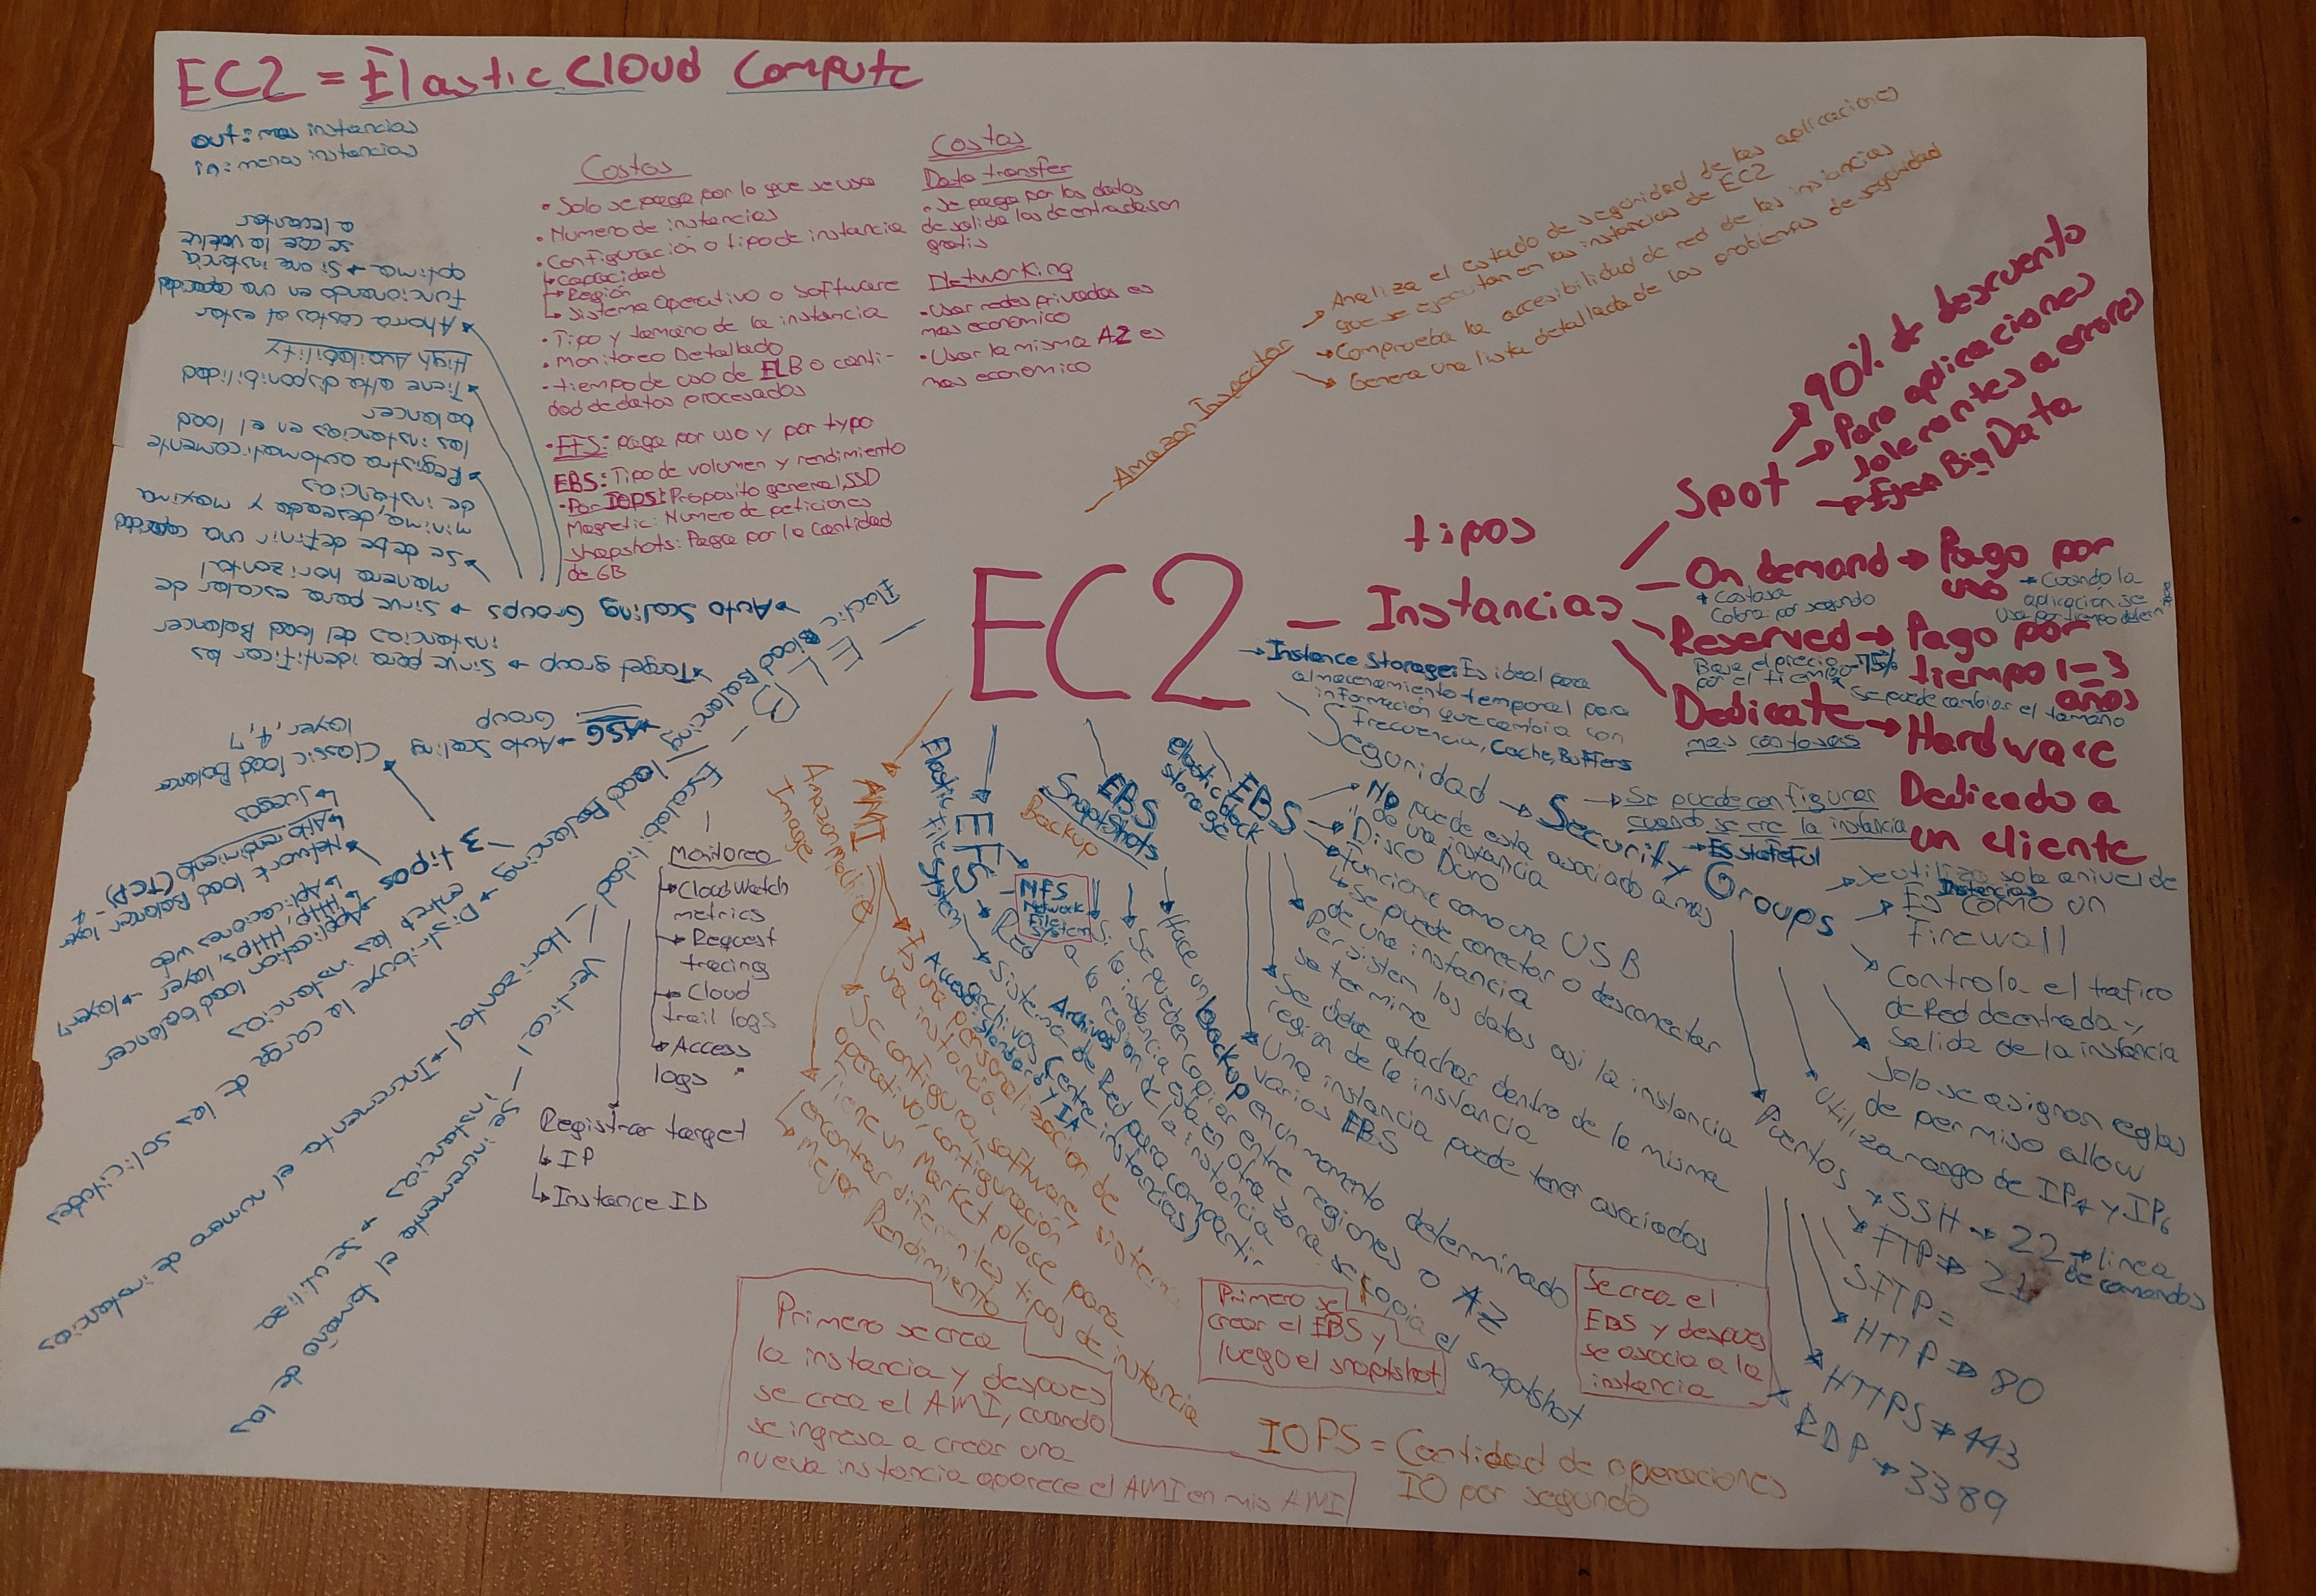 EC2 = Elastic Cloud Compute
out: mas instancias
in: menos instancias
Costos
• Solo se paga por lo que se usa
• Numero de instancias
• Configuración o tipo de instancia
↳ Capacidad
↳ Región
↳ Sistema Operativo o Software
• Tipo y tamaño de la instancia
• Monitoreo Detallado
• tiempo de uso de ELB o canti-
dad de datos procesados
• EFS: paga por uso y por typo
EBS: Tipo de volumen y rendimiento
• Por IOPS: Proposito general, SSD
Magnetic: Numero de peticiones
Snapshots: Paga por la Cantidad
de GB
Costos
Data transfer
• Se paga por los datos
de salida los de entrada son
gratis
Networking
• Usar redes privadas es
mas economico
• Usar la misma AZ es
mas economico
Amazon Inspector
→ Analiza el estado de seguridad de las aplicaciones
que se ejecutan en las instancias de EC2
→ Comprueba la accesibilidad de red de las instancias
→ Genera una lista detallada de los problemas de seguridad
EC2
tipos
— Instancias
Spot
→ 90% de descuento
→ Para aplicaciones
tolerantes a errores
→ Ejem Big Data
On demand → Pago por
uso
→ Costosa
Cobra por segundo
→ Cuando la
aplicación se
Reserved → Pago por
tiempo 1 = 3
años
Baja el precio -75%
por el tiempo
Se puede cambiar el tamaño
Dedicate → Hardware
Dedicado a
un cliente
mas costosas
→ Instance Storage: Es ideal para
almacenamiento temporal para
información que cambia con
frecuencia, Cache, Buffers
Seguridad → Security Groups
→ Se puede configurar
cuando se cre la instancia
→ Es stateful
→ Se utiliza solo a nivel de
Instancias
→ Es como un
Firewall
Controla el trafico
de Red de entrada y
Salida de la instancia
Solo se asignan reglas
de permiso allow
Utiliza rango de IP4 y IP6
Puertos
→ SSH → 22 → linea
de comandos
→ FTP → 21
SFTP =
HTTP → 80
HTTPS → 443
RDP → 3389
EBS
elastic block
storage
→ No puede esta asociado a mas
de una instancia
→ Disco Duro
→ funciona como una USB
↳ Se puede conectar o desconectar
de una instancia
Persisten los datos asi la instancia
se termine
Se debe atachar dentro de la misma
region de la instancia
Una instancia puede tener asociados
varios EBS
Se crea el
EBS y despues
se asocia a la
instancia
EBS
Snaptshots
Backup
→ Hace un backup en un momento determinado
→ Se pueden copiar entre regiones o AZ
Si la instancia esta en otra zona se copia el snaptshot
Primero se
crear el EBS y
luego el snaptshot
EFS
Elastic file system
NFS
Network
File
System
→ Sistema de Red para compartir
archivos (entre instancias)
Acceso: standard y IA
AMI
Amazon Machine
Image
→ Es una personalización de
una instancia
→ Se configura, software, sistema
operativo, configuración
Tiene un Market place para
encontrar diferentes tipos de instancia
↳ mejor Rendimiento
Primero se crea
la instancia y despues
se crea el AMI, cuando
se ingresa a crear una
nueva instancia aparece el AMI en mis AMI
IOPS = Cantidad de operaciones
IO por segundo
ELB
Elastic load Balancing
Monitoreo
→ CloudWatch
metrics
→ Request
tracing
→ Cloud
trail logs
→ Access
logs
Registrar target
↳ IP
↳ Instance ID
Escalabilidad
— Vertical — Se incremente el tamaño de las
instancias → se utiliza
— Horizontal → Incrementa el numero de instancias
load Balancing → Distribuye la carga de las solicitudes
entre las instancias
3 tipos
→ Application load balancer
↳ HTTP, HTTPS, layer → layer 7
↳ Aplicaciones web
→ Network load Balancer layer
↳ Alto rendimiento (TCP) - 4
↳ Juegos
Classic load Balance
layer 4,7
→ ASG → Auto Scaling
Group
→ Target group → Sirve para identificar las
instancias del load Balancer
→ Auto Scaling Groups → Sirve para escalar de
manera horizontal
→ Se debe definir una capacidad
minima, deseada y maxima
de instancias
→ Registra automaticamente
las instancias en el load
balancer
→ Tiene alta disponibilidad
High Availability
→ Ahorra costos al estar
funcionando en una capacidad
optima → Si una instancia
se cae la vuelve
a levantar